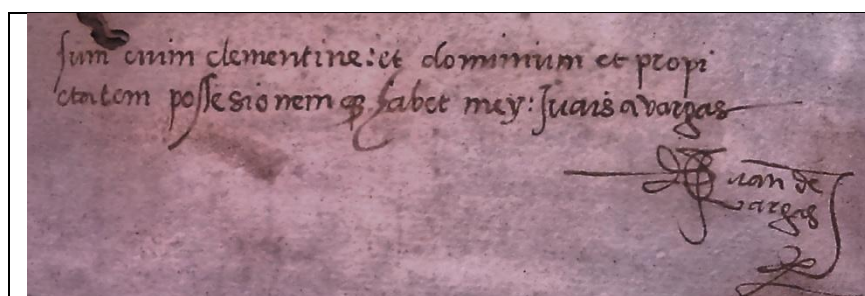 sum enim clementine: et dominium et propi
etatem possesionem qꝫ habet mey: Juãis a vargas
Juan de
vargas